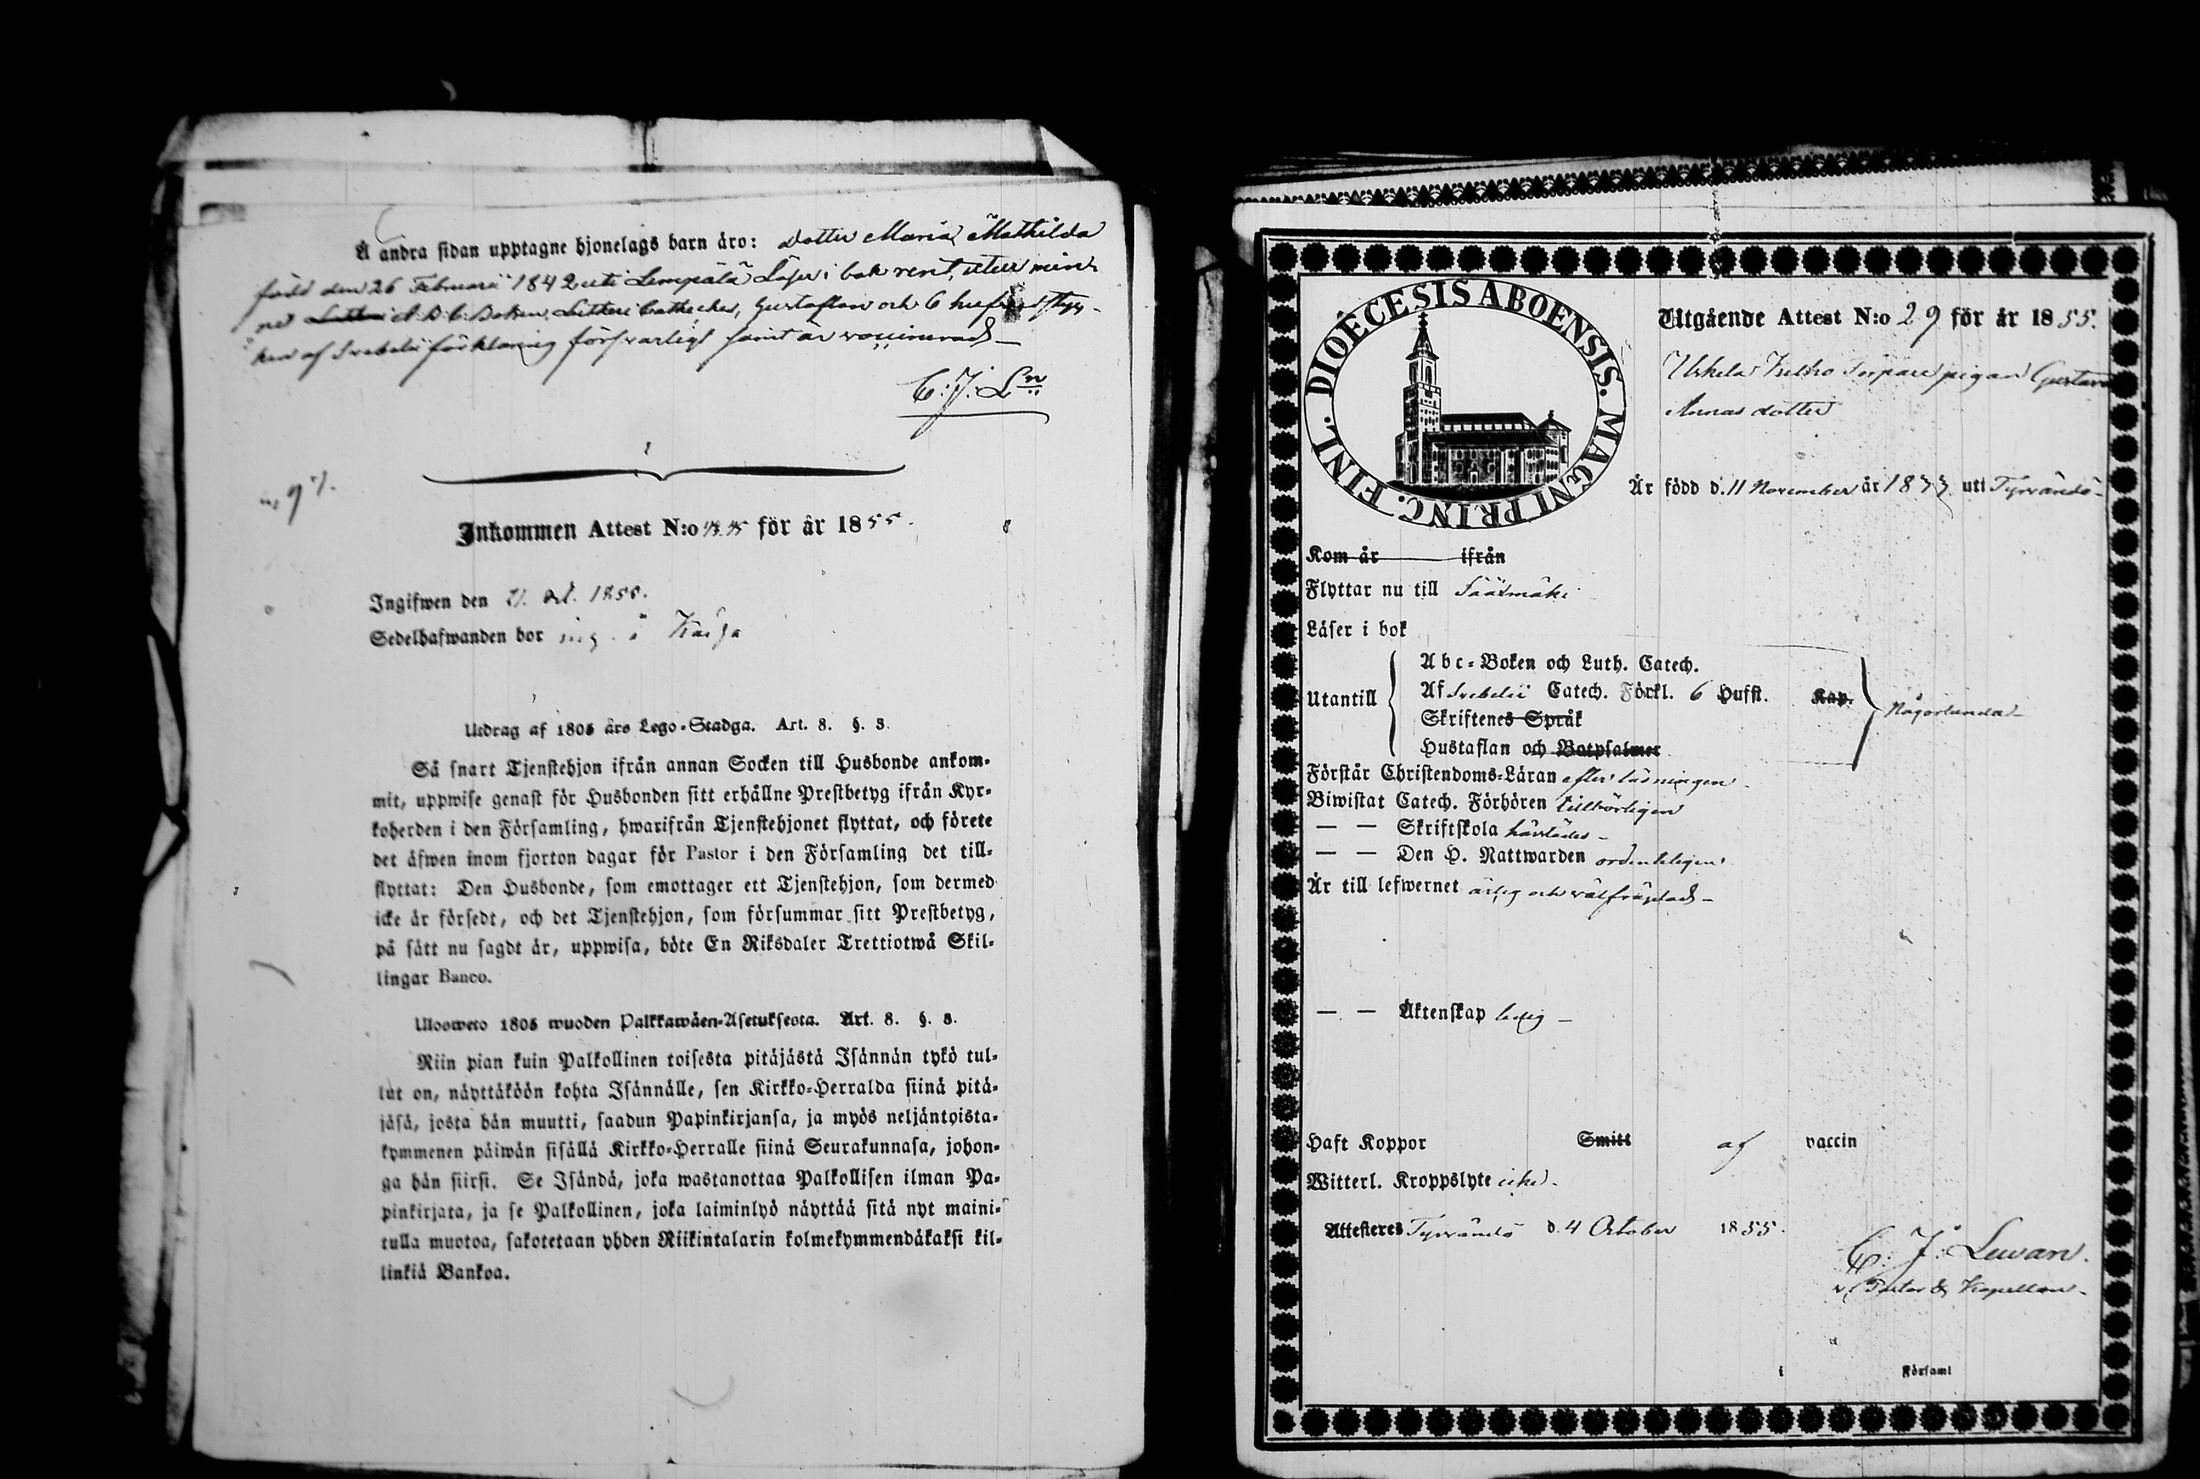 Å andra sidan upptagne hjonelags barn äro: Dotter Maria Mathilda
född den 26 Februari 1842 uti Lempälä Läser i bok rent, utur min-
ne A.B.C. Boken, Lutheri Catheches, Hustaflan och 6 hufvudstyc-
ken af Svebelii förklaring försvarligt samt är vaccinerad
C: J: Ln
Inkommen Attest N:o för år 1855.
Ingifwen den 21. Oct. 1855.
Sedelhafwanden bor
Utdrag af 1805 års Lego-Stadga. Art. 8. §. 3.
Så snart Tjenstehjon ifrån annan Socken till Husbonde ankom-
mit, uppwise genast för Husbonden sitt erhållne Prestbetyg ifrån Kyr-
koherden i den Församling, hwarifrån Tjenstehjonet flyttat, och förete
det äfwen inom fjorton dagar för Pastor i den Församling det till-
flyttat: Den Husbonde, som emottager ett Tjenstehjon, som dermed
icke är försedt, och det Tjenstehjon, som försummar sitt Prestbetyg,
på sätt nu sagdt är, uppwisa, böte En Riksdaler Trettiotwå Skil-
lingar Banco.
Ulosweto 1805 wuoden Palkkawäen-Asetuksesta. Art. 8. §. 3.
Niin pian kuin Palkollinen toisesta pitäjästä Isännän tykö tul-
lut on, näyttäköön kohta Isännälle, sen Kirkko-Herralda siinä pitä-
jäsä, josta hän muutti, saadun Papinkirjansa, ja myös neljäntoista-
kymmenen päiwän sisällä Kirkko-Herralle siinä Seurakunnasa, johon-
ga hän siirsi. Se Isändä, joka wastanottaa Palkollisen ilman Pa-
pinkirjata, ja se Palkollinen, joka laiminlyö näyttää sitä nyt maini-
tulla muotoa, sakotetaan yhden Riikintalarin kolmekymmendäkaksi kil-
linkiä Bankoa.
DIOECESIS ABOENSIS. MAGNI PRINC. FINL.
Utgående Attest N:o 29 för år 1855.
Torpare pigan Gustava
Annas dotter
Är född d. 11 November år 1833 uti Tyrvändö
Kom år ifrån
Flyttar nu till Sääxmäki
Läser i bok
Utantill
Abc-Boken och Luth. Catech.
Af Svebelii Catech. Förkl. 6 Hufst. Kap.
Skriftenes Språk
Hustaflan och Botpsalmer
Någorlunda
Förstår Christendoms-Läran efter lydningen
Biwistat Catech. Förhören tillbörligen
— — Skriftskola
— — Den H. Nattwarden ordenteligen
Är till lefwernet ärlig och välfräjdad
— — Äktenskap ledig
Haft Koppor Smitt af vaccin
Witterl. Kroppslyte icke
Attesteres Tyrvändö d. 4 October 1855.
C: J: Levan.
v. Pastor & Kapellan
i Församl